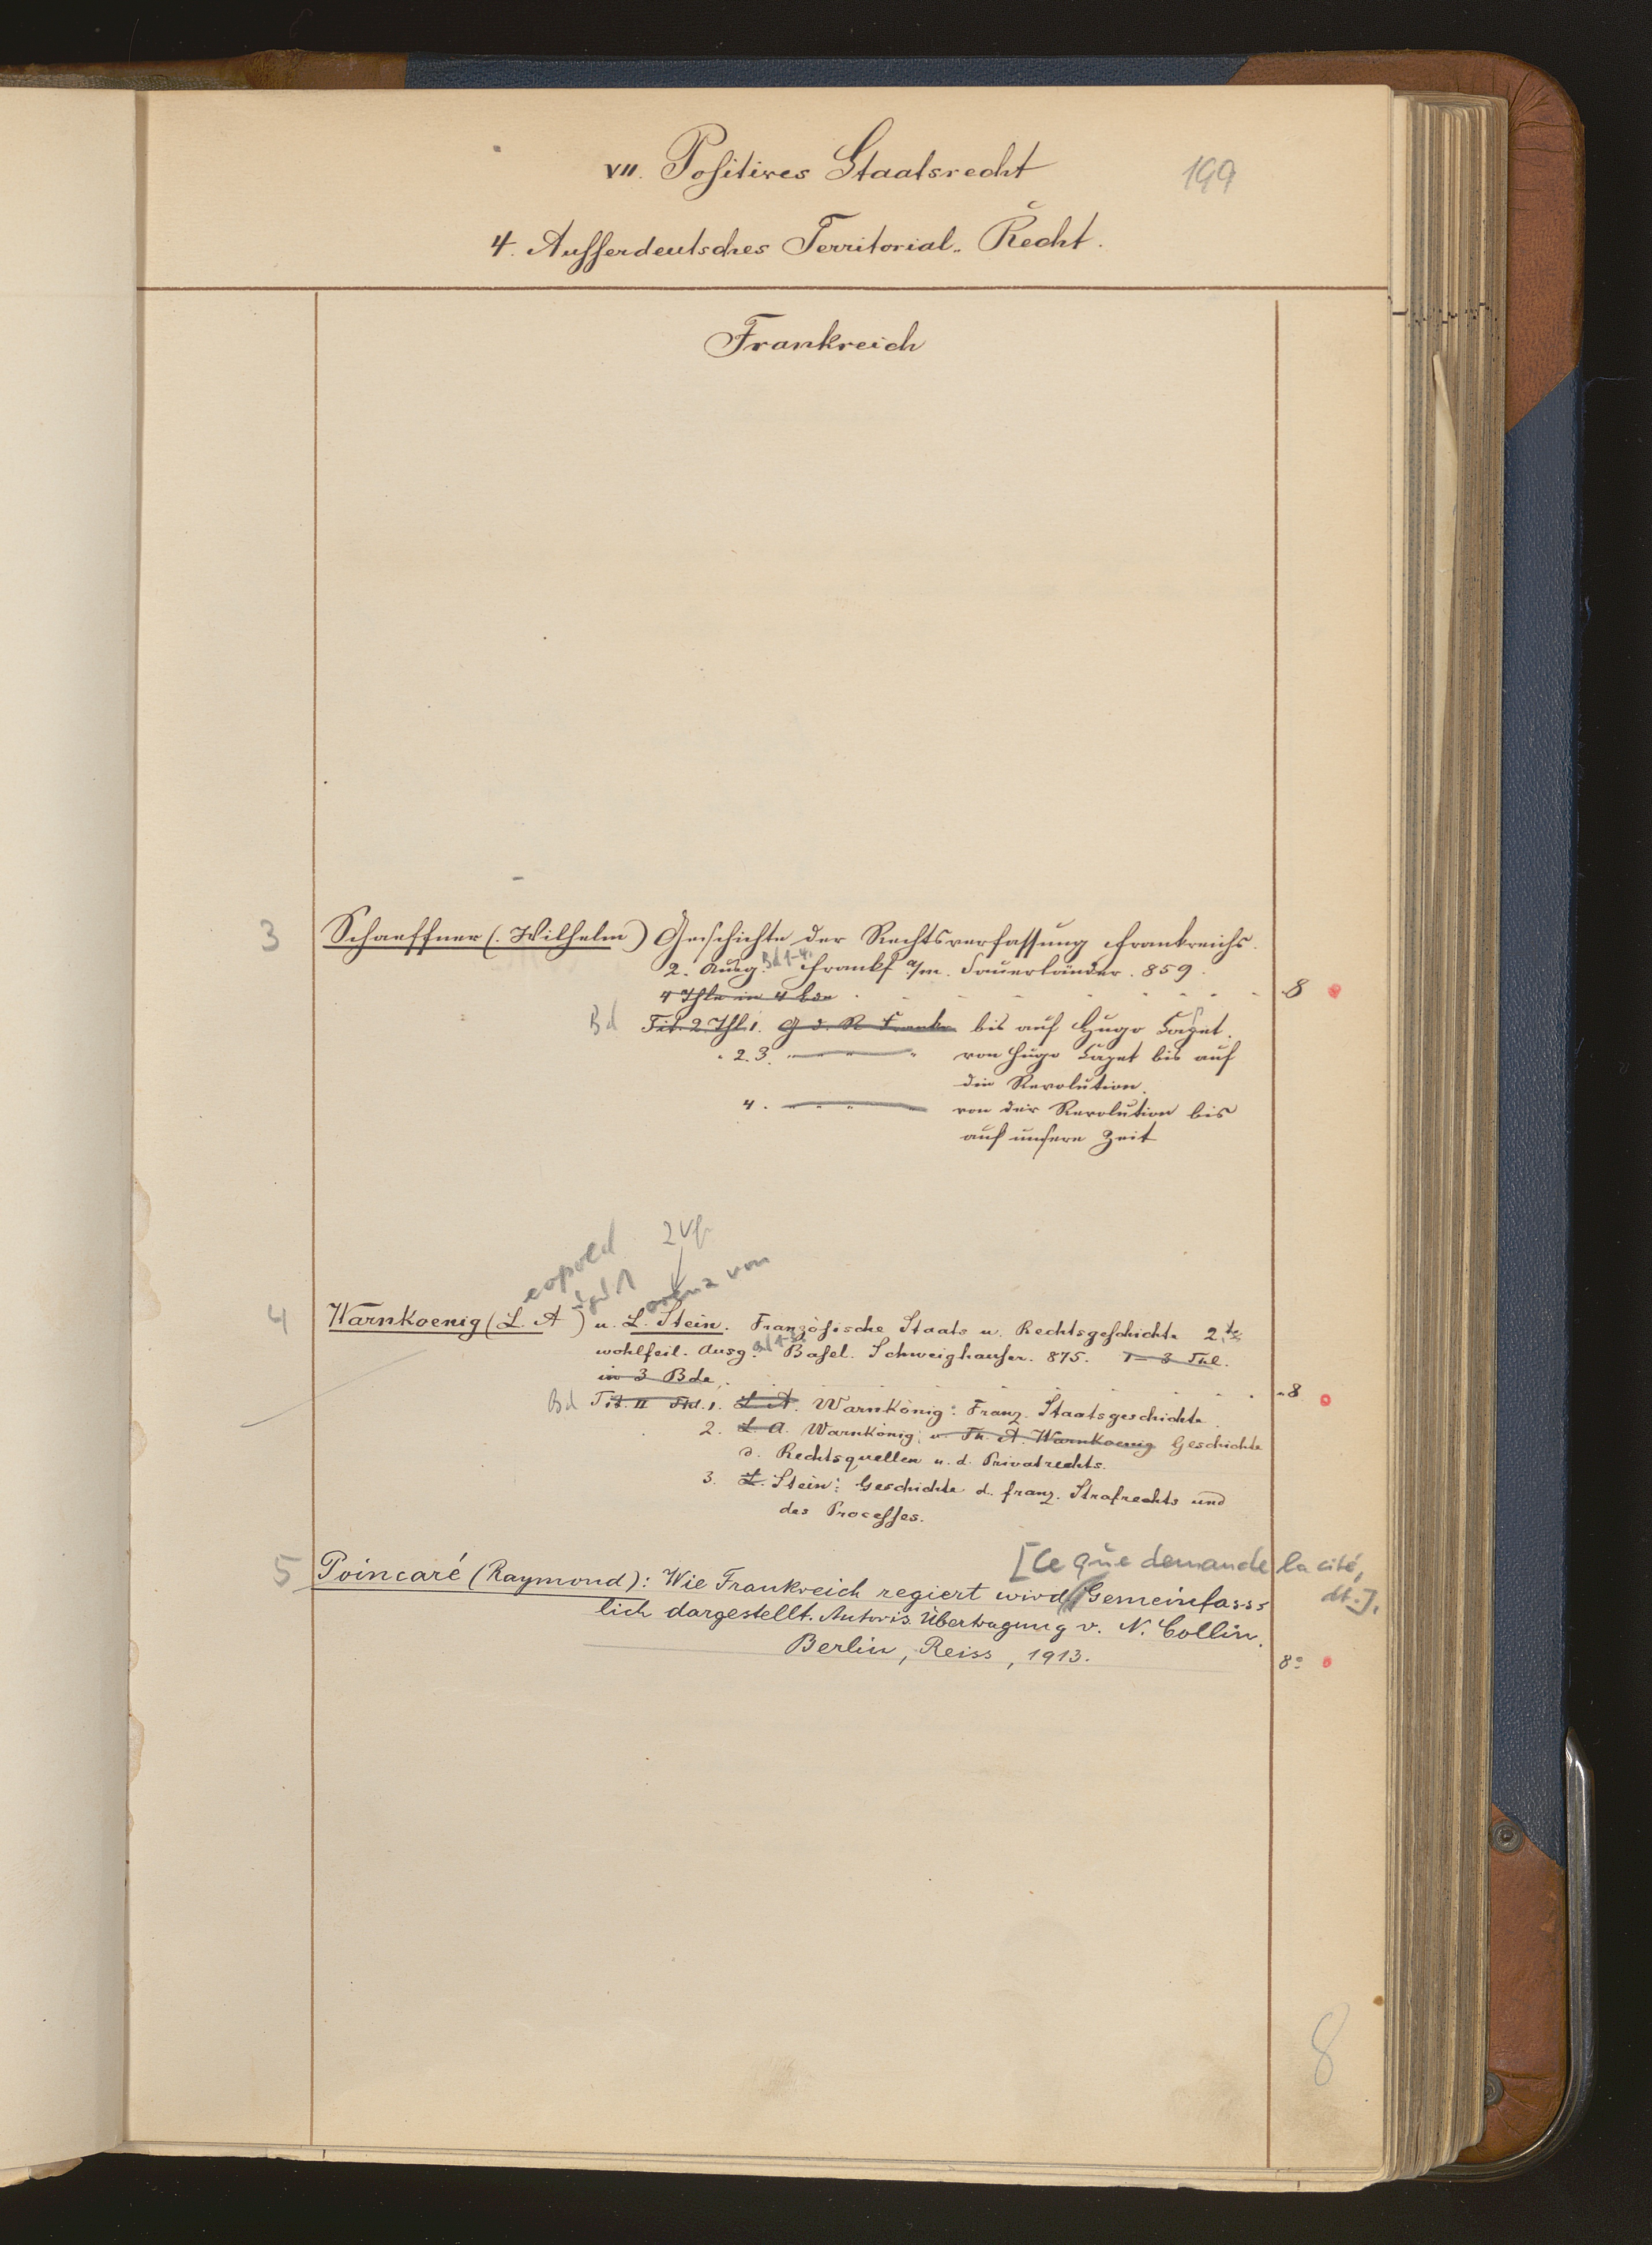 VII. Positives Staatsrecht 199
4. Ausserdeutsches Territorial-Recht.
Frankreich
3 Schaeffner (Wilhelm) Geschichte der Rechtsverfassung Frankreichs.
2. Ausg. Bd 1-4. Frankf a/m. Sauerländer. 859.
4 Thle in 4 Bde . 8
Bd Tit. 2. Thl. 1. G d. R. Frankr. bis auf Hugo Capet.
" 2. 3. " " " von Hugo Capet bis auf
die Revolution.
4. " " " von der Revolution bis
auf unsere Zeit
2 Vf
eopold
orenz von
4 Warnkoenig (L. A) u. L. Stein. Französische Staats u. Rechtsgeschichte 2te
wohlfeil. Ausg. Bd 1-3. Basel. Schweighauser. 875. 1-3 Thl.
in 3 Bde. 8
Bd Tit. II Thl. 1. L. A. Warnkönig: Franz. Staatsgeschichte.
2. L. A. Warnkönig; u. Th. A. Warnkoenig Geschichte
d. Rechtsquellen u. d. Privatrechts.
3. L. Stein: Geschichte d. franz. Strafrechts und
des Processes.
[Ce que demande la cité,
dt.].
5 Poincaré (Raymond): Wie Frankreich regiert wird. Gemeinfass
lich dargestellt. Autoris. Übertragung v. N. Collin.
Berlin, Reiss, 1913. 8°
8